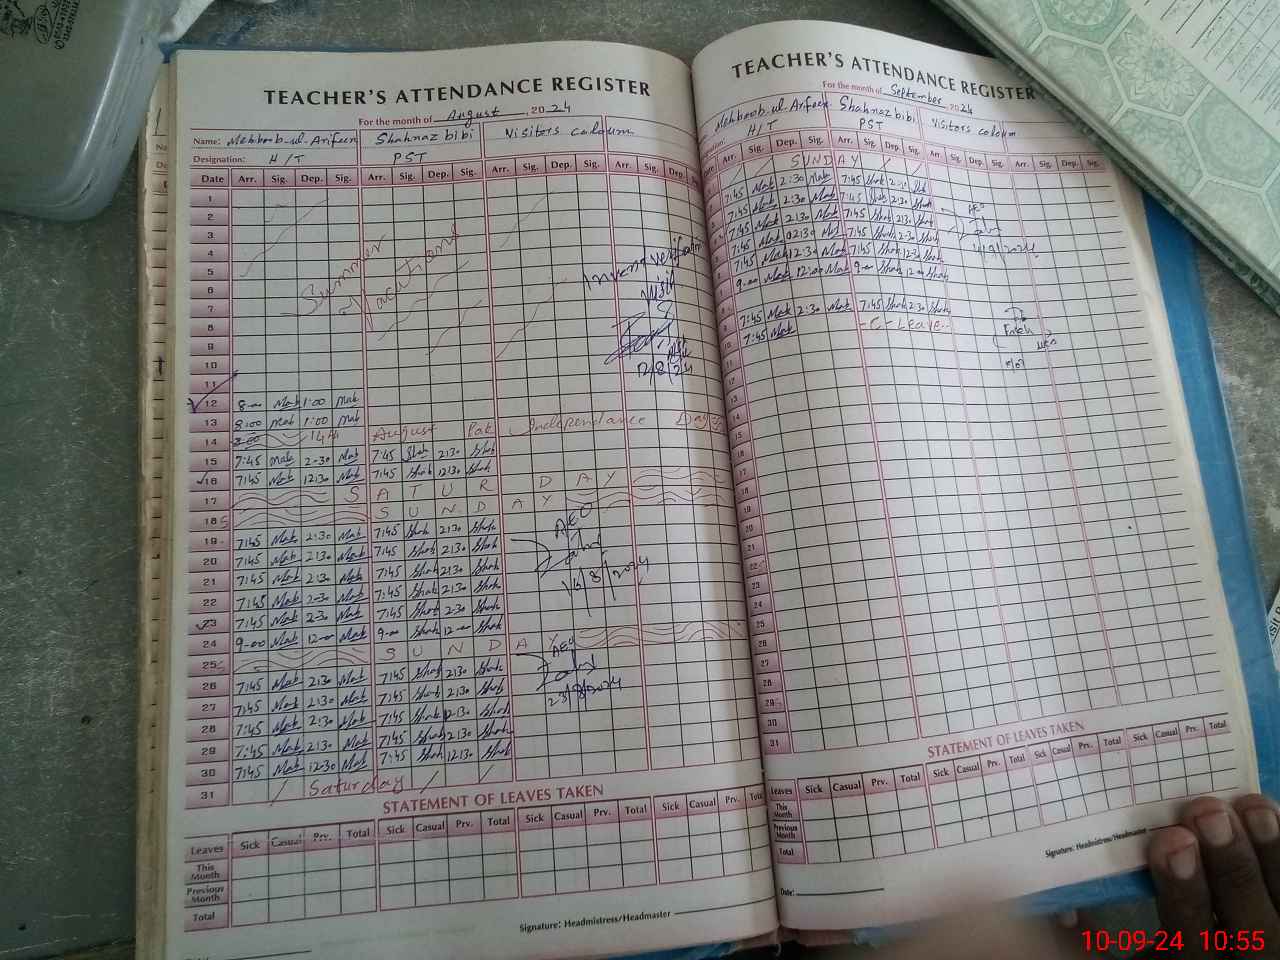 TEACHER'S ATTENDANCE REGISTER
For the month of August, 2024
Name: Mehboob ul Arifeen Shahnaz bibi Visitors coloum
Designation: H/T PST
Date Arr. Sig. Dep. Sig. Arr. Sig. Dep. Sig. Arr. Sig. Dep. Sig. Arr. Sig. Dep.
1
2
3
4
5
6
7
8
9
10
11
Summer
Vacations
Visit
12/8/24
12 8-00 Mab 1:00 Mab
13 8:00 Mab 1:00 Mab
14 14th August Pak Independance Day
15 7:45 Mab 2-30 Mab 7:45 Shah 2:30 Shah
16 7:45 Mab 12:30 Mab 7:45 Shah 12:30 Shah
17 SATURDAY
18 SUNDAY
19 7:45 Mab 2:30 Mab 7:45 Shah 2:30 Shah
20 7:45 Mab 2:30 Mab 7:45 Shah 2:30 Shah
21 7:45 Mab 2:30 Mab 7:45 Shah 2:30 Shah
22 7:45 Mab 2-30 Mab 7:45 Shah 2:30 Shah
23 7:45 Mab 2-30 Mab 7:45 Shah 2-30 Shah
24 9-00 Mab 12-00 Mab 9-00 Shah 12-00 Shah
25 SUNDAY
26 7:45 Mab 2:30 Mab 7:45 Shah 2:30 Shah
27 7:45 Mab 2:30 Mab 7:45 Shah 2:30 Shah
28 7:45 Mab 2:30 Mab 7:45 Shah 2:30 Shah
29 7:45 Mab 2:30 Mab 7:45 Shah 2:30 Shah
30 7:45 Mab 12:30 Mab 7:45 Shah 12:30 Shah
31 Saturday
AEO
16/8/2024
AEO
23/8/2024
STATEMENT OF LEAVES TAKEN
Leaves Sick Casual Prv. Total Sick Casual Prv. Total Sick Casual Prv. Total Sick Casual Prv. Total
This Month
Previous Month
Total
Signature: Headmistress/Headmaster
TEACHER'S ATTENDANCE REGISTER
For the month of September, 2024
Mehboob ul Arifeen Shahnaz bibi Visitors coloum
H/T PST
Arr. Sig. Dep. Sig. Arr. Sig. Dep. Sig. Arr. Sig. Dep. Sig. Arr. Sig. Dep. Sig.
SUNDAY
7:45 Mab 2:30 Mab 7:45 Shah 2:30 Shah
7:45 Mab 2:30 Mab 7:45 Shah 2:30 Shah
7:45 Mab 2:30 Mab 7:45 Shah 2:30 Shah
7:45 Mab 02:30 Mab 7:45 Shah 2:30 Shah
7:45 Mab 12:30 Mab 7:45 Shah 12:30 Shah
9-00 Mab 12:00 Mab 9-00 Shah 12-00 Shah
7:45 Mab 2:30 Mab 7:45 Shah 2:30 Shah
10 7:45 Mab -C-Leave-
11
12
13
14
15
16
17
18
19
20
21
22
23
24
25
26
27
28
29
30
31
STATEMENT OF LEAVES TAKEN
Leaves Sick Casual Prv. Total Sick Casual Prv. Total Sick Casual Prv. Total
This Month
Previous Month
Total
Signature: Headmistress/Headmaster
Date:
10-09-24 10:55